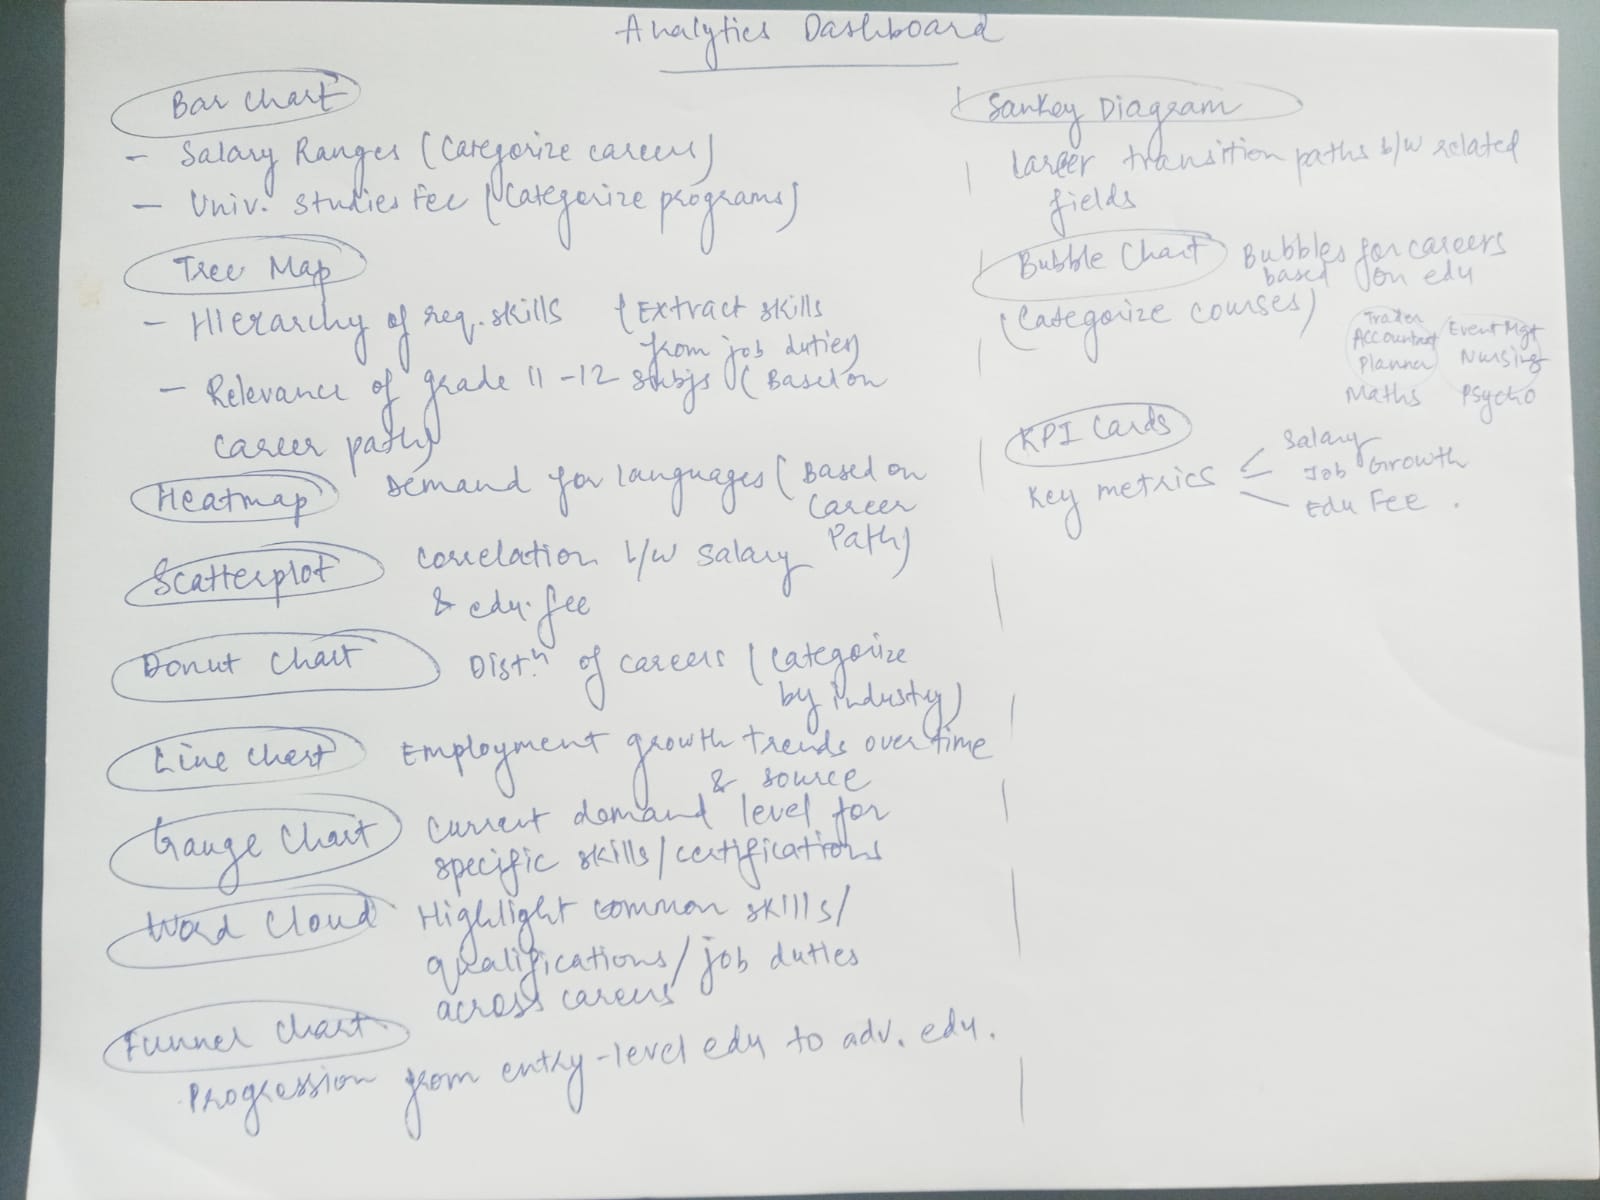 Analytics Dashboard
Bar Chart
- Salary Ranges (Categorize careers)
- Univ. Studies Fee (Categorize programs)
Tree Map
- Hierarchy of req. skills (Extract skills
from job duties)
- Relevance of grade 11-12 subjs (Based on
career path)
Heatmap Demand for languages (Based on
Career
Path)
Scatterplot Correlation b/w salary
& edu. fee
Donut Chart Distn of careers (Categorize
by industry)
Line Chart Employment growth trends over time
& source
Gauge Chart Current demand level for
specific skills/certifications
Word Cloud Highlight common skills/
qualifications/job duties
across careers
Funnel Chart
Progression from entry-level edu to adv. edu.
Sankey Diagram
Career transition paths b/w related
fields
Bubble Chart Bubbles for careers
based on edu
(Categorize courses)
Trader
Accountant
Planner
Maths
Event Mgt
Nursing
Psycho
KPI Cards
Key metrics
Salary
Job Growth
Edu Fee.